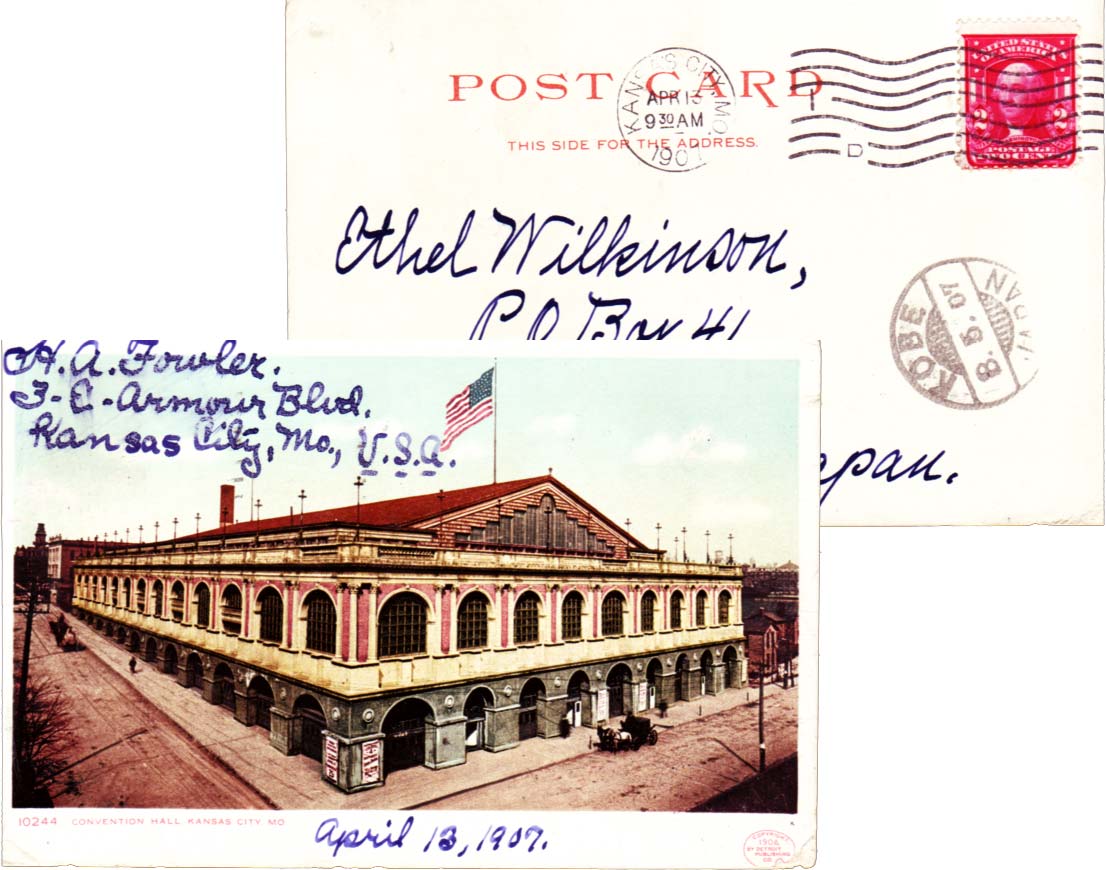 POST CARD
THIS SIDE FOR THE ADDRESS.
KANSAS CITY, MO.
APR 13
9 30 AM
1907
D
UNITED STATES
OF AMERICA
2 2
POSTAGE
TWO CENTS
Ethel Wilkinson,
P.O. Box 41
KOBE
8.5.07
JAPAN
apan.
H. A. Fowler.
3-E-Armour Blvd.
Kansas City, Mo., U.S.A.
10244 CONVENTION HALL, KANSAS CITY, MO.
April 13, 1907.
COPYRIGHT
BY DETROIT
PUBLISHING
CO.